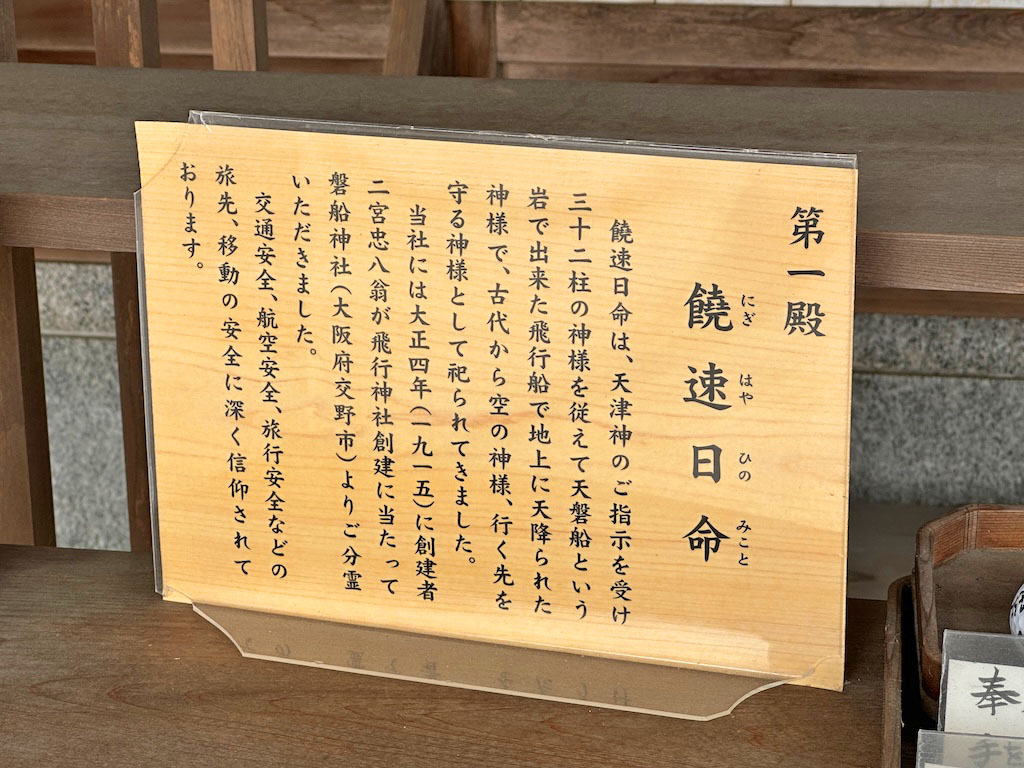 第一殿
饒速日命
にぎ はや ひの みこと
饒速日命は、天津神のご指示を受け
三十二柱の神様を従えて天磐船という
岩で出来た飛行船で地上に天降られた
神様で、古代から空の神様、行く先を
守る神様として祀られてきました。
当社には大正四年(一九一五)に創建者
二宮忠八翁が飛行神社創建に当たって
磐船神社(大阪府交野市)よりご分霊
いただきました。
交通安全、航空安全、旅行安全などの
旅先、移動の安全に深く信仰されて
おります。
奉